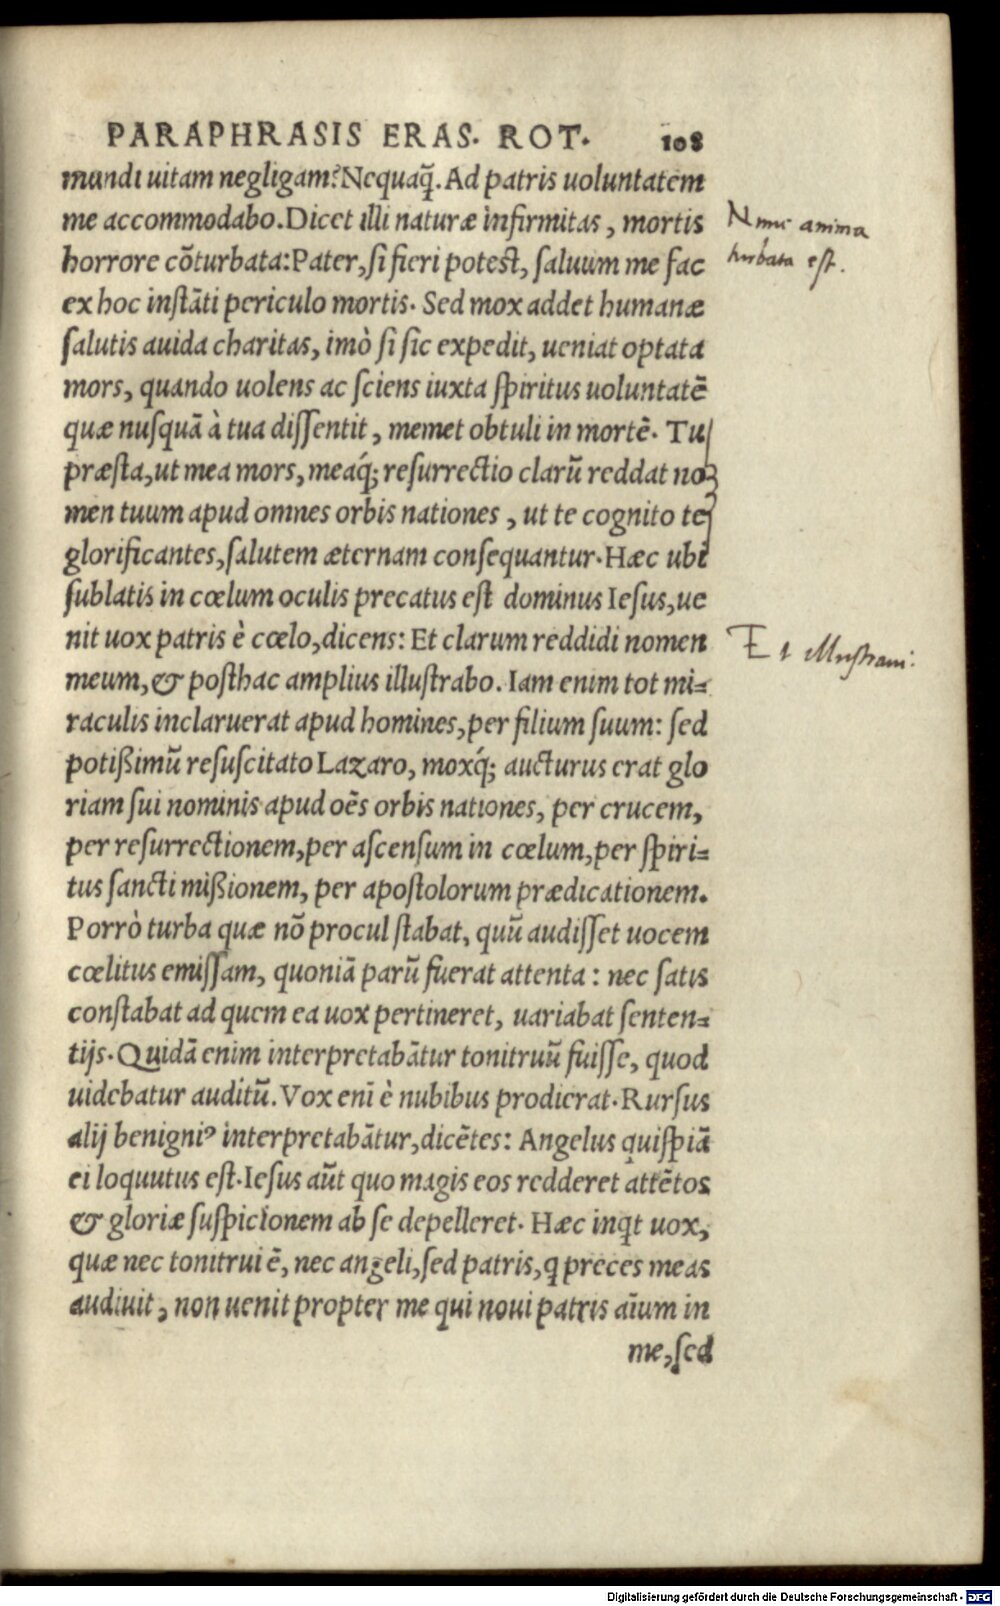 PARAPHRASIS ERAS. ROT. 108
mundi uitam negligam? Nequaq̃. Ad patris uoluntatem
me accommodabo. Dicet illi naturæ infirmitas, mortis
horrore cõturbata: Pater, si fieri potest, saluum me fac
ex hoc instãti periculo mortis. Sed mox addet humanæ
salutis auida charitas, imò si sic expedit, ueniat optata
mors, quando uolens ac sciens iuxta spiritus uoluntatẽ
quæ nusquã à tua dissentit, memet obtuli in mortẽ. Tu
præsta, ut mea mors, meaq́; resurrectio clarũ reddat no
men tuum apud omnes orbis nationes, ut te cognito te
glorificantes, salutem æternam consequantur. Hæc ubi
sublatis in cœlum oculis precatus est dominus Iesus, ue
nit uox patris è cœlo, dicens: Et clarum reddidi nomen
meum, & posthac amplius illustrabo. Iam enim tot mi-
raculis inclaruerat apud homines, per filium suum: sed
potißimũ resuscitato Lazaro, moxq́; aucturus erat glo
riam sui nominis apud oẽs orbis nationes, per crucem,
per resurrectionem, per ascensum in cœlum, per spiri-
tus sancti mißionem, per apostolorum prædicationem.
Porrò turba quæ nõ procul stabat, quũ audisset uocem
cœlitus emissam, quoniã parũ fuerat attenta: nec satis
constabat ad quem ea uox pertineret, uariabat senten-
tijs. Quidã enim interpretabãtur tonitruũ fuisse, quod
uidebatur auditũ. Vox enĩ è nubibus prodierat. Rursus
alij benigniꝰ interpretabãtur, dicẽtes: Angelus quispiã
ei loquutus est. Iesus aũt quo magis eos redderet attẽtos
& gloriæ suspicionem ab se depelleret. Hæc inqt uox,
quæ nec tonitrui ẽ, nec angeli, sed patris, q preces meas
audiuit, non uenit propter me qui noui patris aĩum in
me, sed
Nunc anima
turbata est.
Et illustraui:
Digitalisierung gefördert durch die Deutsche Forschungsgemeinschaft - DFG